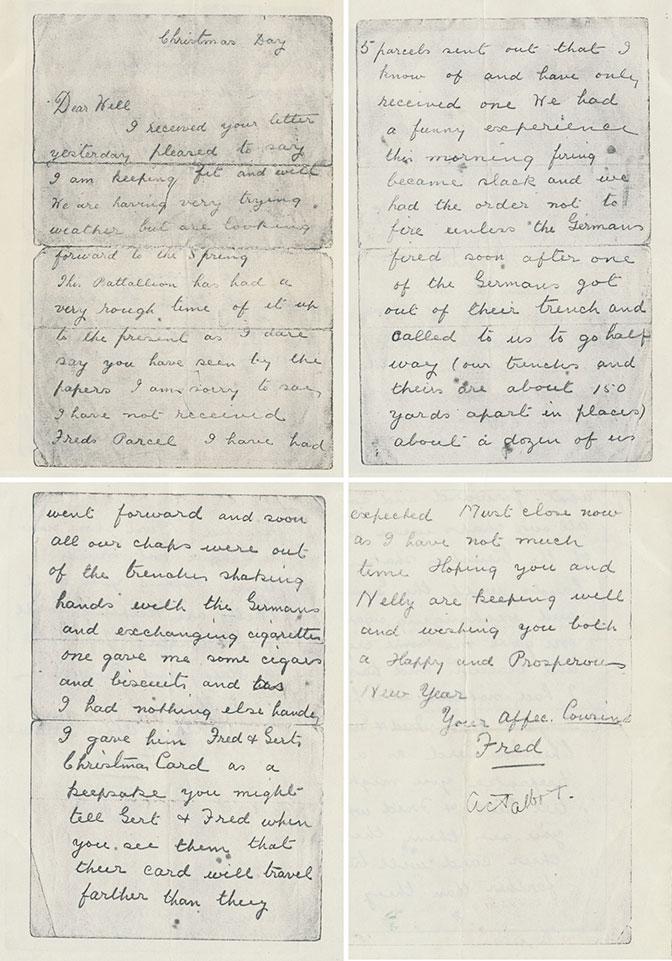 Christmas Day
Dear Will
I received your letter
yesterday pleased to say
I am keeping fit and well
We are having very trying
weather but are looking
forward to the Spring
The Battallion has had a
very rough time of it up
to the present as I dare
say you have seen by the
papers I am sorry to say
I have not received
Freds Parcel I have had
5 parcels sent out that I
know of and have only
received one We had
a funny experience
this morning firing
became slack and we
had the order not to
fire unless the Germans
fired soon after one
of the Germans got
out of their trench and
called to us to go half
way (our trenches and
theirs are about 150
yards apart in places)
about a dozen of us
went forward and soon
all our chaps were out
of the trenches shaking
hands with the Germans
and exchanging cigarettes
one gave me some cigars
and biscuits and as
I had nothing else handy
I gave him Fred & Gerts
Christmas Card as a
keepsake you might
tell Gert & Fred when
you see them that
their card will travel
farther than they
expected Must close now
as I have not much
time Hoping you and
Nelly are keeping well
and wishing you both
a Happy and Prosperous
New Year
Your Affec. Cousin
Fred